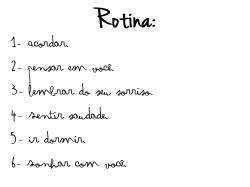 Rotina:
1- acordar.
2- pensar em você
3- lembrar do seu sorriso
4- sentir saudade
5- ir dormir.
6- sonhar com você